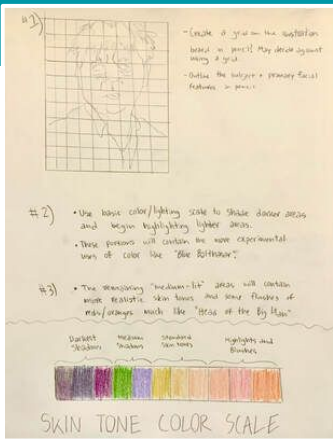 #1)
- Create a grid on the illustration
board in pencil! May decide against
using a grid.
- Outline the subject + primary facial
features in pencil
#2)
• Use basic color/lighting scale to shade darker areas
and begin highlighting lighter areas.
• These portions will contain the more experimental
uses of color like "Blue Balthazar".
#3)
• The remaining "medium-lit" areas will contain
more realistic skin tones and some flushes of
reds/oranges much like "Head of the Big Man"
Darkest
Shadows
Medium
Shadows
Standard
Skin tones
Highlights and
Blushes
SKIN TONE COLOR SCALE